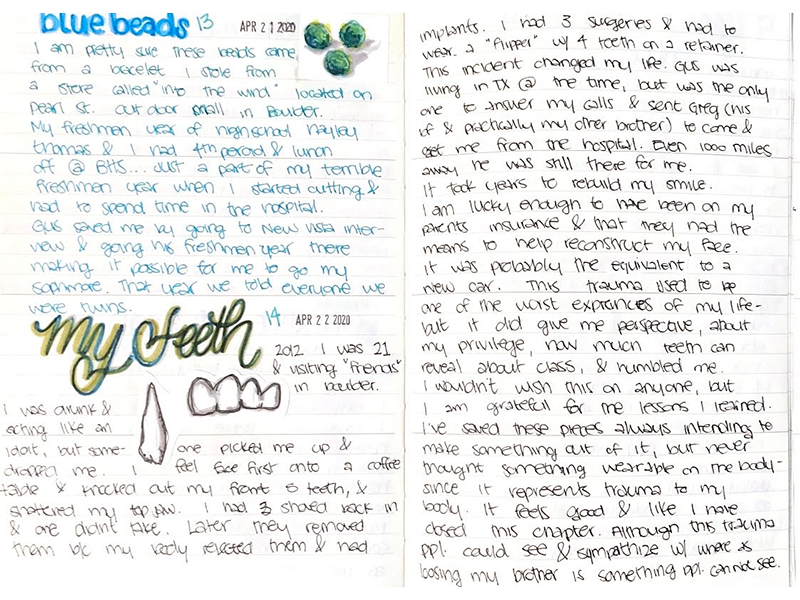 blue beads 13 APR 21 2020
I am pretty sure these beads came
from a bracelet I stole from
a store called "into the wind" located on
pearl st. out door mall in Boulder.
My freshmen year of highschool Hayley
thomas & I had 4th peroid & lunch
off @ BHS... Just a part of my terrible
freshmen year when I started cutting &
had to spend time in the hospital.
Gus saved me by going to New Vista inter-
view & going his freshmen year there
making it possible for me to go my
sophmore. That year we told everyone we
were twins.
My teeth 14 APR 22 2020
2012 I was 21
& visiting "friends"
in boulder.
I was drunk &
acting like an
idoit, but some- one picked me up &
dropped me. I fell face first onto a coffee
table & knocked out my front 5 teeth, &
shattered my top jaw. I had 3 shoved back in
& one didn't take. Later they removed
them b/c my body rejected them & had
implants. I had 3 surgeries & had to
wear a "flipper" w/ 4 teeth on a retainer.
This incident changed my life. Gus was
living in TX @ the time, but was the only
one to answer my calls & sent Greg (his
bf & practically my other brother) to come &
get me from the hospital. Even 1000 miles
away he was still there for me.
It took years to rebuild my smile.
I am lucky enough to have been on my
parents insurance & that they had the
means to help reconstruct my face.
It was probably the equivalent to a
new car. This trauma used to be
one of the worst expriances of my life-
but it did give me perspective, about
my privilege, how much teeth can
reveal about class, & humbled me.
I wouldn't wish this on anyone, but
I am grateful for the lessons I retained.
I've saved these pieces always intending to
make something out of it, but never
thought something wearable on the body-
since it represents trauma to my
body. It feels good & like I have
closed this chapter. Although this trauma
ppl. could see & sympathize w/ where as
losing my brother is something ppl. cannot see.